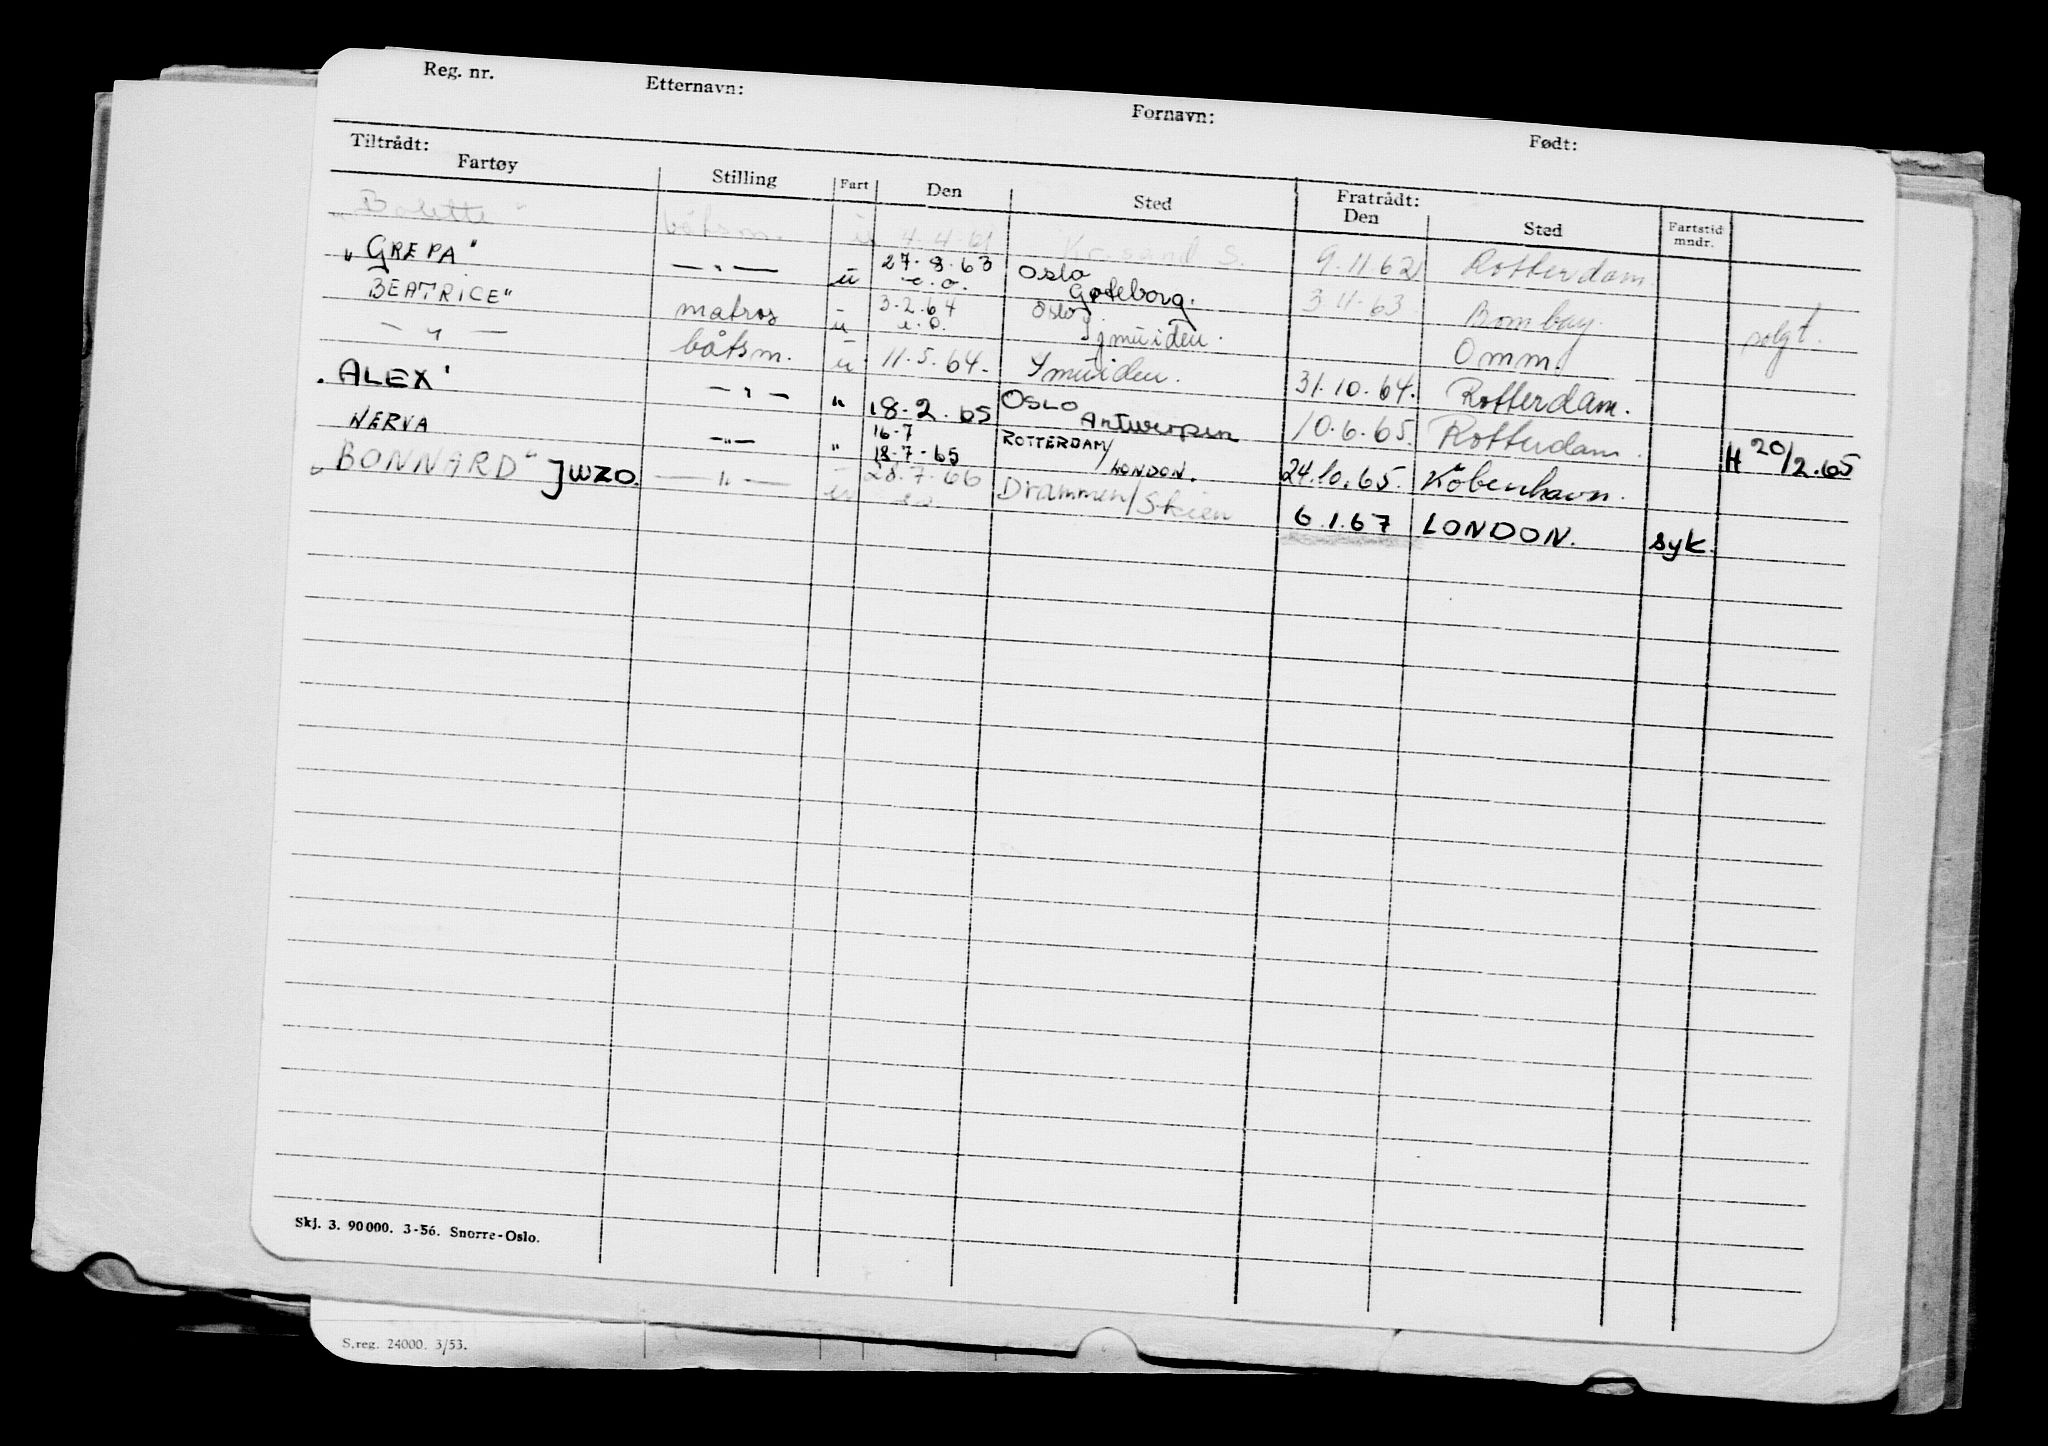 Reg. nr. Etternavn: Fornavn: Født:
Tiltrådt: Fratrådt:
Fartøy Stilling Fart Den Sted Den Sted Fartstid mndr.
" Bolette " båtsm. u 4.4.61 Kr.sand S. 9.11.62 Rotterdam
" GREPA " — " — u 27.8.63 e.o. Oslo Gøteborg. 3.11.63 Bombay. solgt.
BEATRICE " matros u 3.2.64 e.o. Oslo Ijmuiden. Omm.
— " — båtsm. u 11.5.64. Ymuiden. 31.10.64. Rotterdam.
" ALEX " — " — " 18.2.65 OSLO Antwerpen 10.6.65. Rotterdam. H 20/2.65
NERVA — " — " 16-7 18-7-65 ROTTERDAM/LONDON. 24.10.65. København.
" BONNARD " JWZO. — " — u 28.7.66 e.o. Drammen/Skien 6.1.67 LONDON. syk.
Skj. 3. 90000. 3-56. Snorre-Oslo.
S.reg. 24000. 3/53.